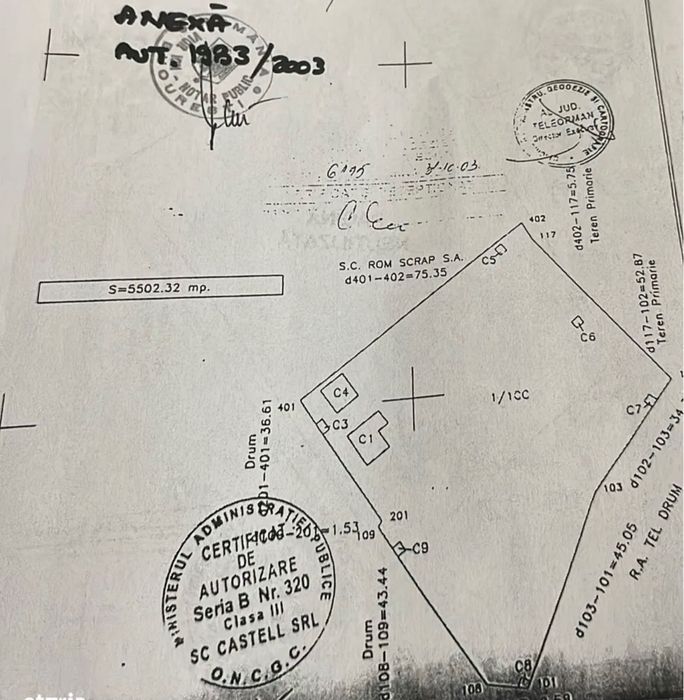 ANEXĂ
AUT. 1983/2003
NOTAR PUBLIC
JUD.
TELEORMAN
Director Executiv
6195
31-10-03
402
117
d402-117=5.75
Teren Primarie
S.C. ROM SCRAP S.A.
d401-402=75.35
C5
S=5502.32 mp.
d117-102=52.87
Teren Primarie
C6
C4
401
C3
C1
1/1CC
C7
d102-103=34
103
Drum
01-401=36.61
201
109
C9
d103-101=45.05
R.A. TEL DRUM
-201=1.53
MINISTERUL ADMINISTRATIEI PUBLICE
CERTIFICAT
DE
AUTORIZARE
Seria B Nr. 320
Clasa III
SC CASTELL SRL
O.N.C.G.C.
Drum
d108-109=43.44
108
C8
101